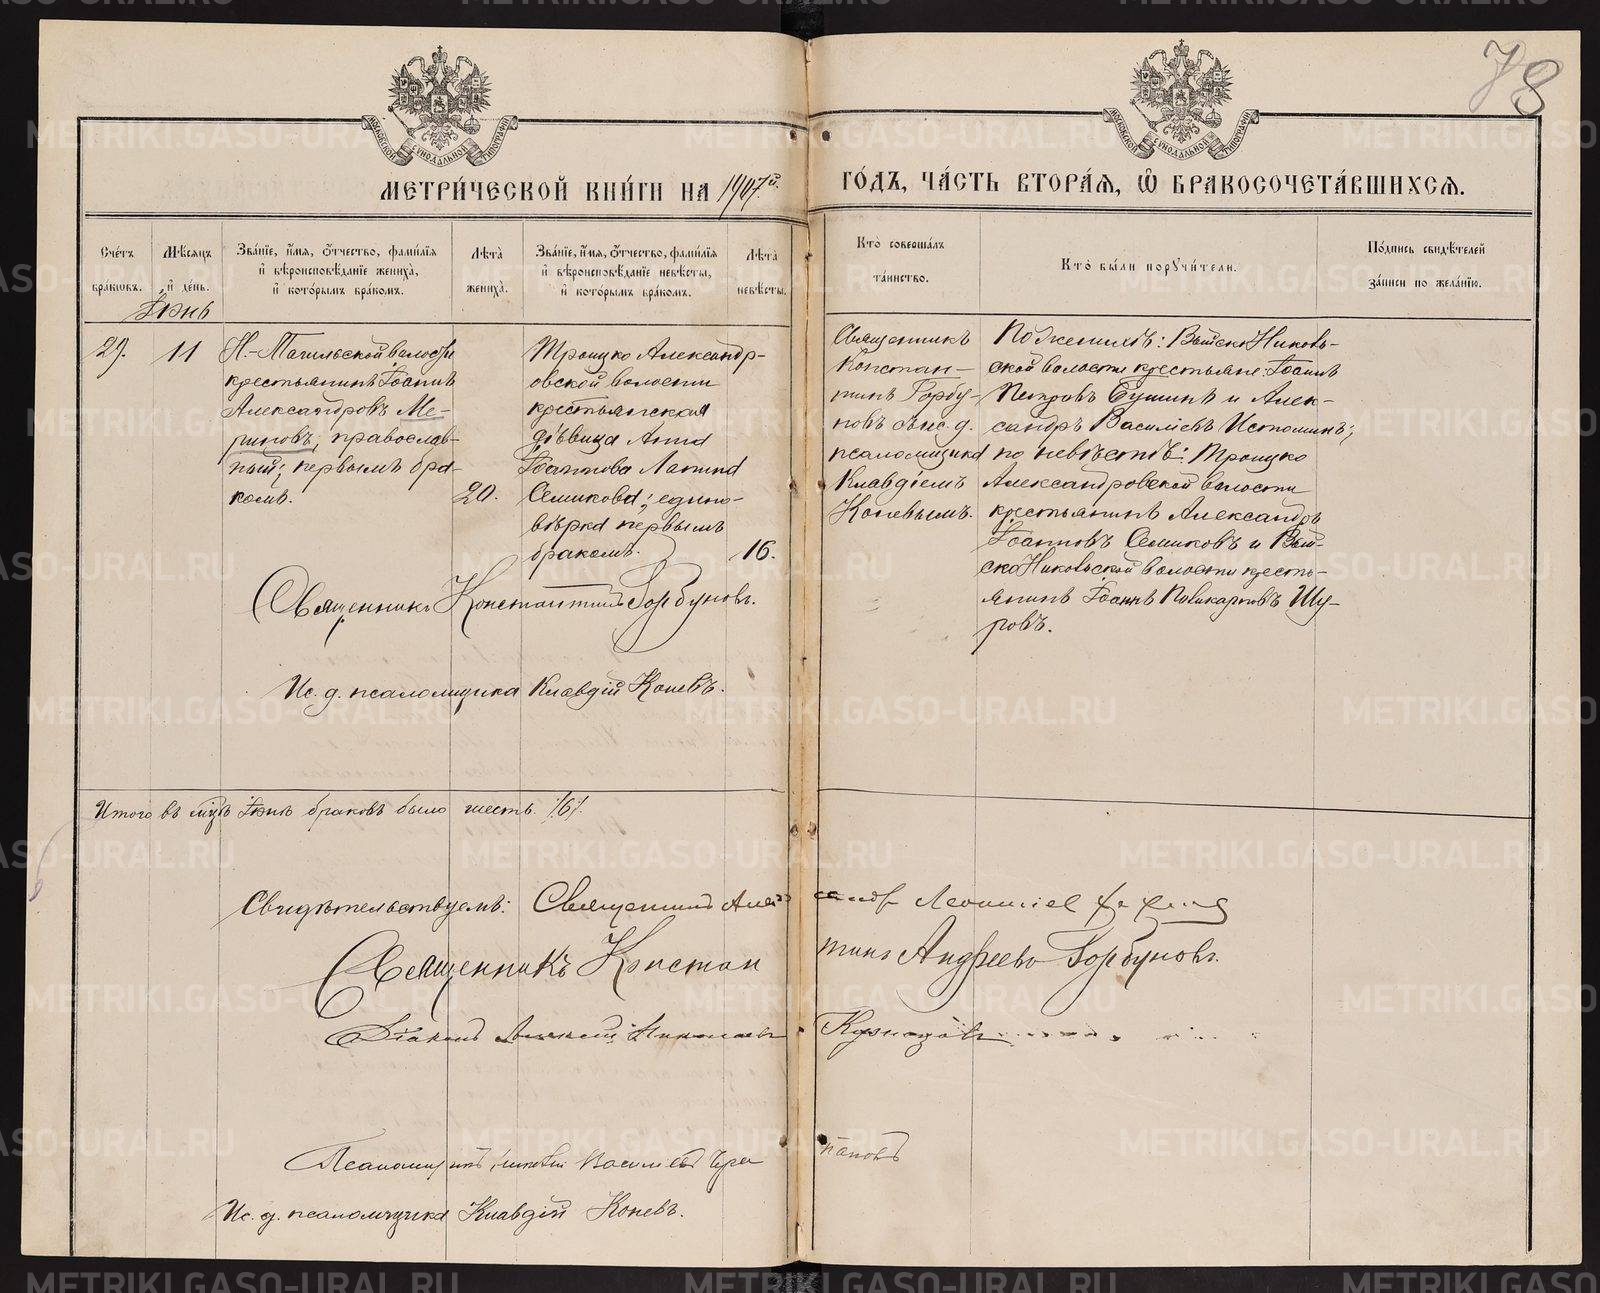 78
МОСКОВСКОЙ СѴНОДАЛЬНОЙ ТИПОГРАФІИ
МОСКОВСКОЙ СѴНОДАЛЬНОЙ ТИПОГРАФІИ
МЕТРИ́ЧЕСКОЙ КНИ́ГИ НА 1907й.
ГО́ДЪ, ЧА́СТЬ ВТОРА́Я, Ѡ БРАКОСОЧЕТА́ВШИХСЯ.
Сче́тъ бра́ковъ.
Мѣ́сяцъ и́ де́нь.
Зва́нїе, и́мя, о́тчество, фами́лїя и́ вѣроисповѣ́данїе жениха̀, и́ кото́рымъ бра́комъ.
Лѣ́та жениха̀.
Зва́нїе, и́мя, о́тчество, фами́лїя и́ вѣроисповѣ́данїе невѣ́сты, и́ кото́рымъ бра́комъ.
Лѣ́та невѣ́сты.
Кто̀ соверша́лъ та́инство.
Кто̀ бы́ли поручи́тели.
По́дпись свидѣ́телей за́писи по жела́нїю.
Іюнь
29.
11
Н.-Тагильской волости
крестьянинъ Іоаннъ
Александровъ Ме-
риновъ, православ-
ный; первымъ бра-
комъ.
20.
Троицко Александр-
овской волости
крестьянская
дѣвица Анна
Іоаннова Лапина
Семикова; едино-
вѣрка первымъ
бракомъ.
16.
Священникъ
Констан-
тинъ Горбу-
новъ съ ис. д.
псаломщика
Клавдіемъ
Коневымъ.
По женихѣ: Выйско Николь-
ской волости крестьяне: Іоаннъ
Петровъ Бушинъ и Алек-
сандръ Василіевъ Истоминъ;
по невѣстѣ: Троицко
Александровской волости
крестьянинъ Александръ
Іоанновъ Семиковъ и Вый-
ско Никольской волости кресть-
янинъ Іоаннъ Поликарповъ Шу-
ровъ.
Священникъ Константинъ Горбуновъ.
Ис. д. псаломщика Клавдій Коневъ.
Итого въ мцѣ Іюнѣ браковъ было шесть /6/.
Свидѣтельствуемъ: Священникъ Александръ
Священникъ Константинъ Андреевъ Горбуновъ.
Діаконъ Алексій Николаевъ Кузнецовъ
Псаломщикъ Василіевъ
Ис. д. псаломщика Клавдій Коневъ.
METRIKI.GASO-URAL.RU